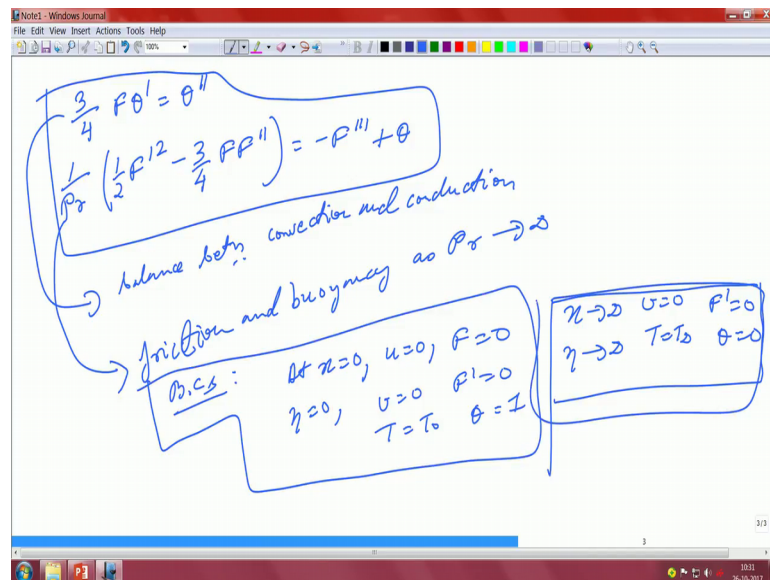 Note1 - Windows Journal
File Edit View Insert Actions Tools Help
100%
3/4 Fθ' = θ''
1/Pr (1/2 F'² - 3/4 FF'') = -F''' + θ
balance betn. convection and conduction
friction and buoyancy as Pr → ∞
B.Cs: At x=0, u=0, F=0
η=0, v=0 F'=0
T=T₀ θ=1
x→∞ v=0 F'=0
η→∞ T=T∞ θ=0
3/3
3
10:31
26-10-2017